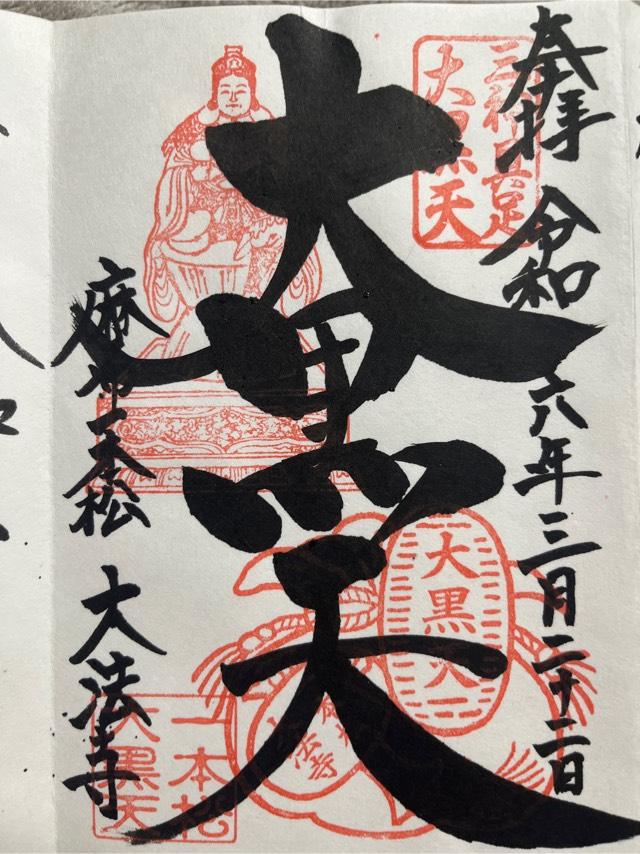 奉拝 令和六年三月二十二日
三神具足
大黒天
大黒天
大黒天
法寺
麻布一本松 大法寺
一本松
大黒天